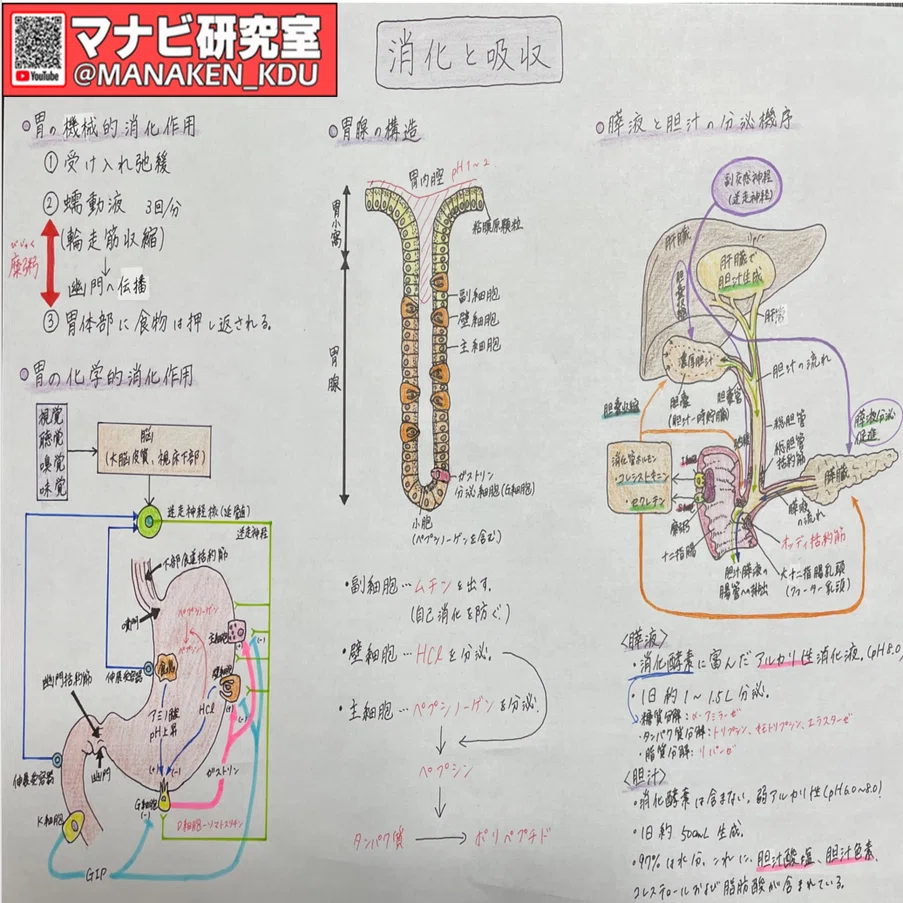 YouTube
マナビ研究室
@MANAKEN_KDU
消化と吸収
胃の機械的消化作用
① 受け入れ弛緩
② 蠕動液 3回/分
(輪走筋収縮)
びじゅく
糜粥
幽門へ伝播
③ 胃体部に食物は押し返される。
胃の化学的消化作用
視覚
聴覚
嗅覚
味覚
脳
(大脳皮質、視床下部)
迷走神経核(延髄)
迷走神経
下部食道括約筋
噴門
ペプシノーゲン
ペプシン
主細胞
(-)
壁細胞
(+)
(-)
食塊
伸展受容器
アミノ酸
pH上昇
HCl
幽門括約筋
幽門
伸展受容器
(+)
(-)
ガストリン
G細胞
(-)
D細胞-ソマトスタチン
K細胞
GIP
胃腺の構造
胃内腔
pH1~2
胃小窩
粘膜原顆粒
胃腺
副細胞
壁細胞
主細胞
ガストリン
分泌細胞(G細胞)
小胞
(ペプシノーゲンを含む)
・副細胞…ムチンを出す。
(自己消化を防ぐ。)
・壁細胞…HClを分泌。
・主細胞…ペプシノーゲンを分泌。
ペプシン
タンパク質
ポリペプチド
膵液と胆汁の分泌機序
副交感神経
(迷走神経)
肝臓
肝臓で
胆汁生成
胆嚢収縮
肝管
濃厚胆汁
胆汁の流れ
胆嚢
(胆汁一時貯蔵)
胆嚢管
胆嚢収縮
総胆管
総胆管
括約筋
膵液分泌
促進
膵臓
消化管ホルモン
・コレシストキニン
・セクレチン
糜粥
十二指腸
膵液
の流れ
オッディ括約筋
胆汁膵液の
腸管への排出
大十二指腸乳頭
(ファーター乳頭)
<膵液>
・消化酵素に富んだアルカリ性消化液。(pH8.0)
・1日約1~1.5L分泌。
・糖質分解：α-アミラーゼ
・タンパク質分解：トリプシン、キモトリプシン、エラスターゼ
・脂質分解：リパーゼ
<胆汁>
・消化酵素は含まない。弱アルカリ性(pH6.0~8.0)
・1日約500mL生成。
・97%は水分、これに、胆汁酸塩、胆汁色素、
コレステロールおよび脂肪酸が含まれている。